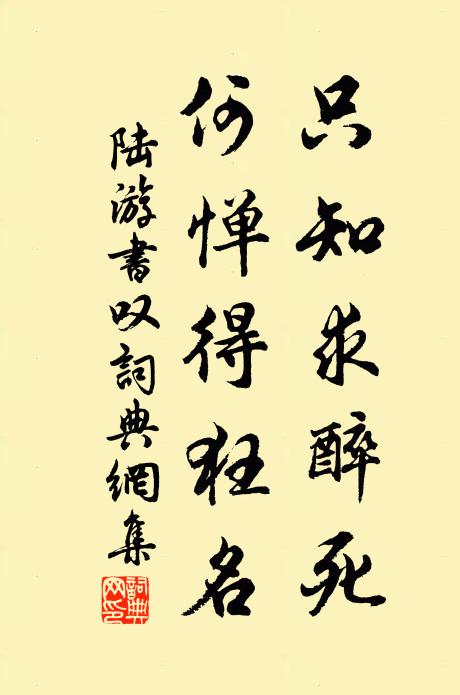 只知求醉死
何惮得狂名
陆游书叹詞典網集
詞典网印